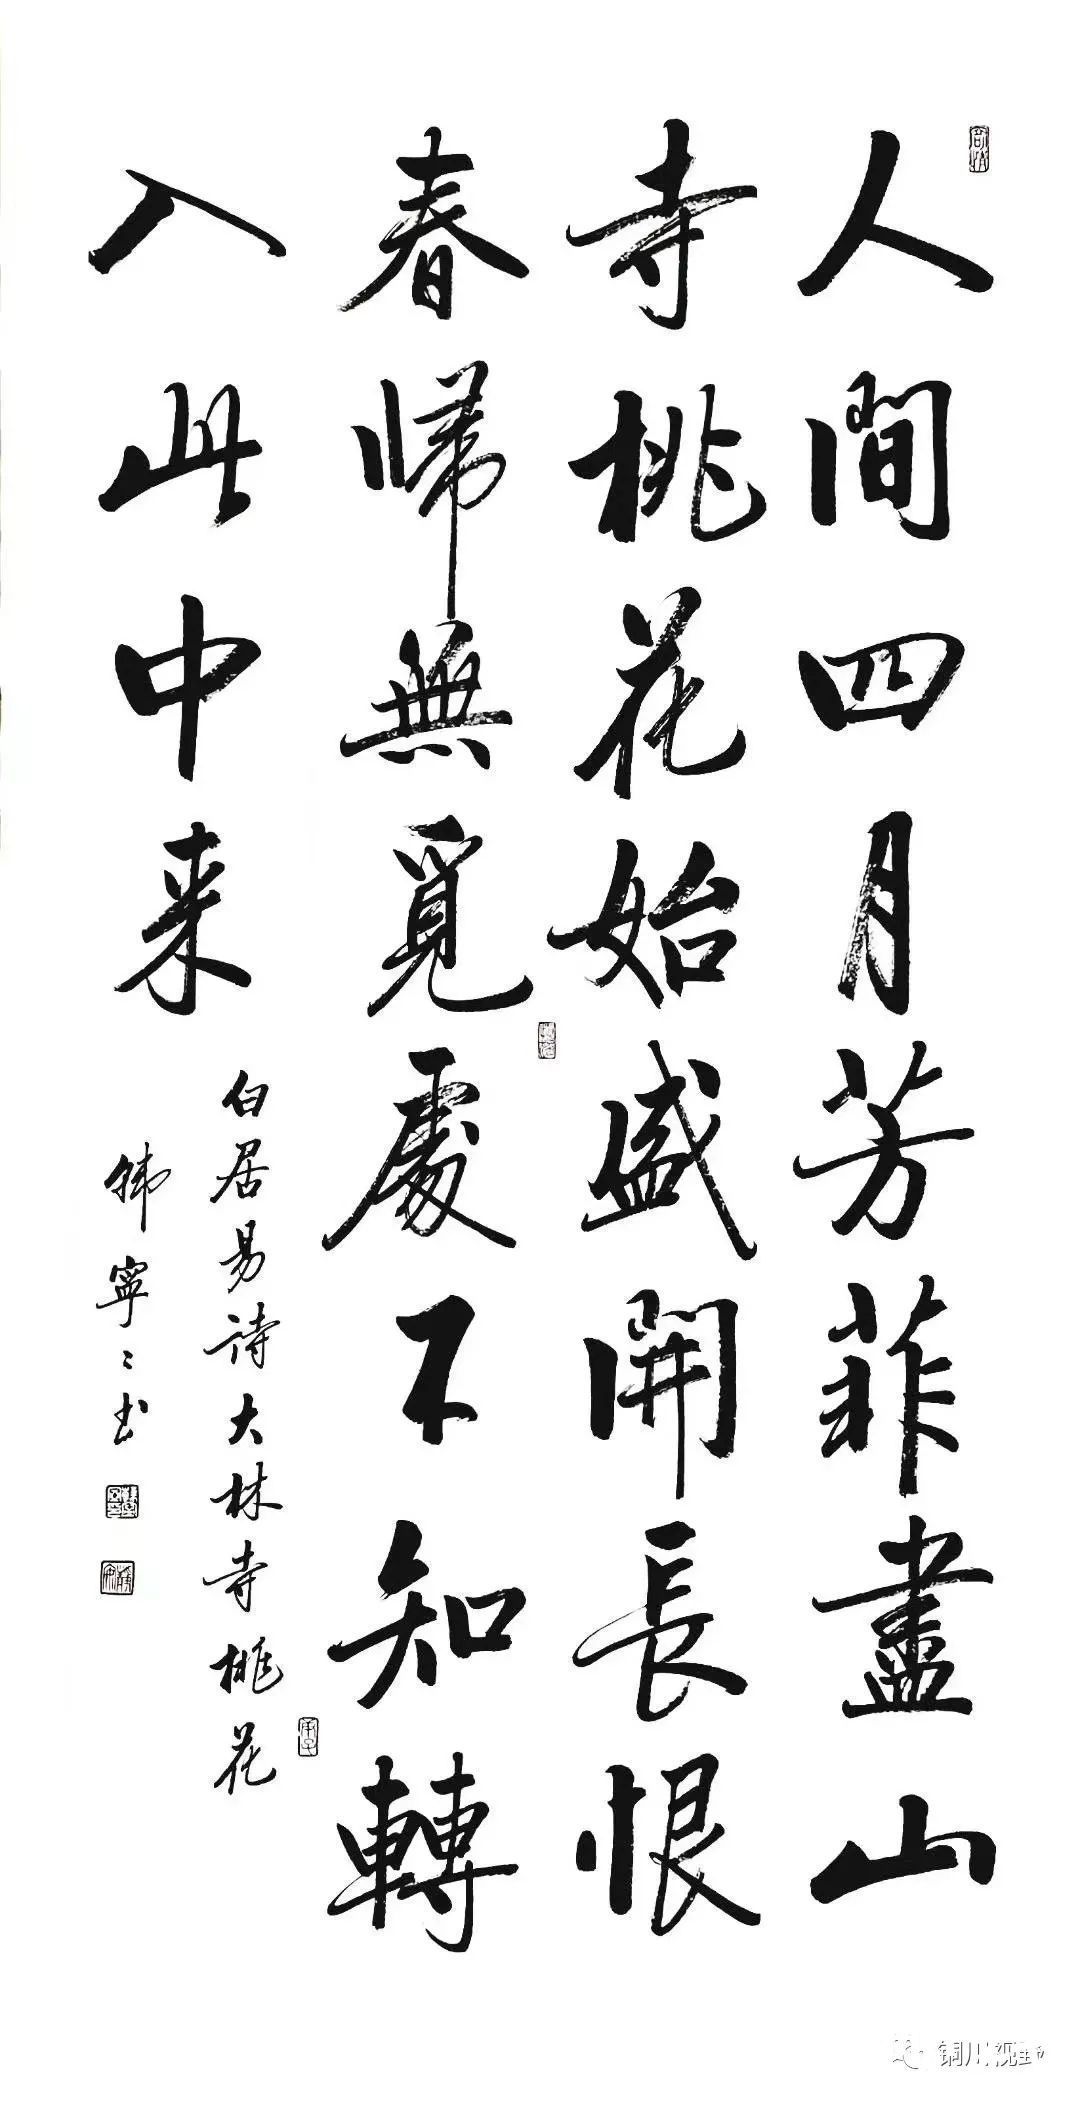 人間四月芳菲盡山
寺桃花始盛開長恨
春帰無覓處不知轉
入此中来
白居易诗大林寺桃花
韩寧々书
铜川视